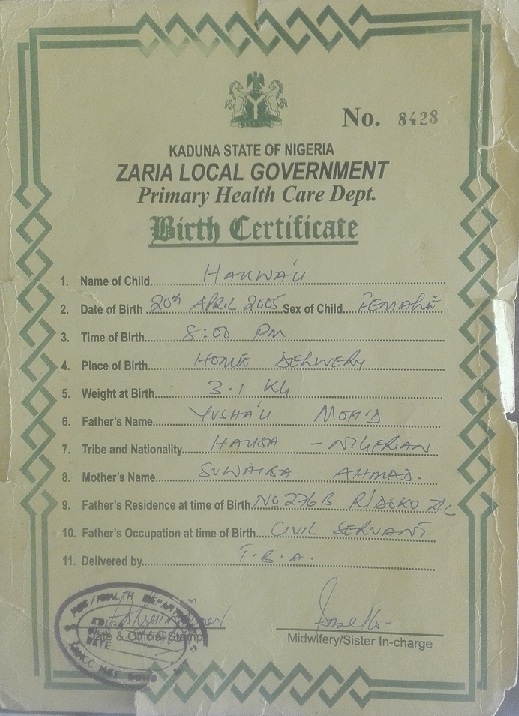 No. 8428
KADUNA STATE OF NIGERIA
ZARIA LOCAL GOVERNMENT
Primary Health Care Dept.
Birth Certificate
1. Name of Child. HAUWA'U
2. Date of Birth 20th APRIL 2005 Sex of Child FEMALE
3. Time of Birth 8:00 PM
4. Place of Birth HOME DELIVERY
5. Weight at Birth 3.1 KG
6. Father's Name YUSHA'U MOH'D
7. Tribe and Nationality HAUSA - NIGERIAN
8. Mother's Name SUWAIBA AHMAD.
9. Father's Residence at time of Birth NO 276B
10. Father's Occupation at time of Birth CIVIL SERVANT
11. Delivered by T.B.A.
Date & Official Stamp
Midwifery/Sister In-charge